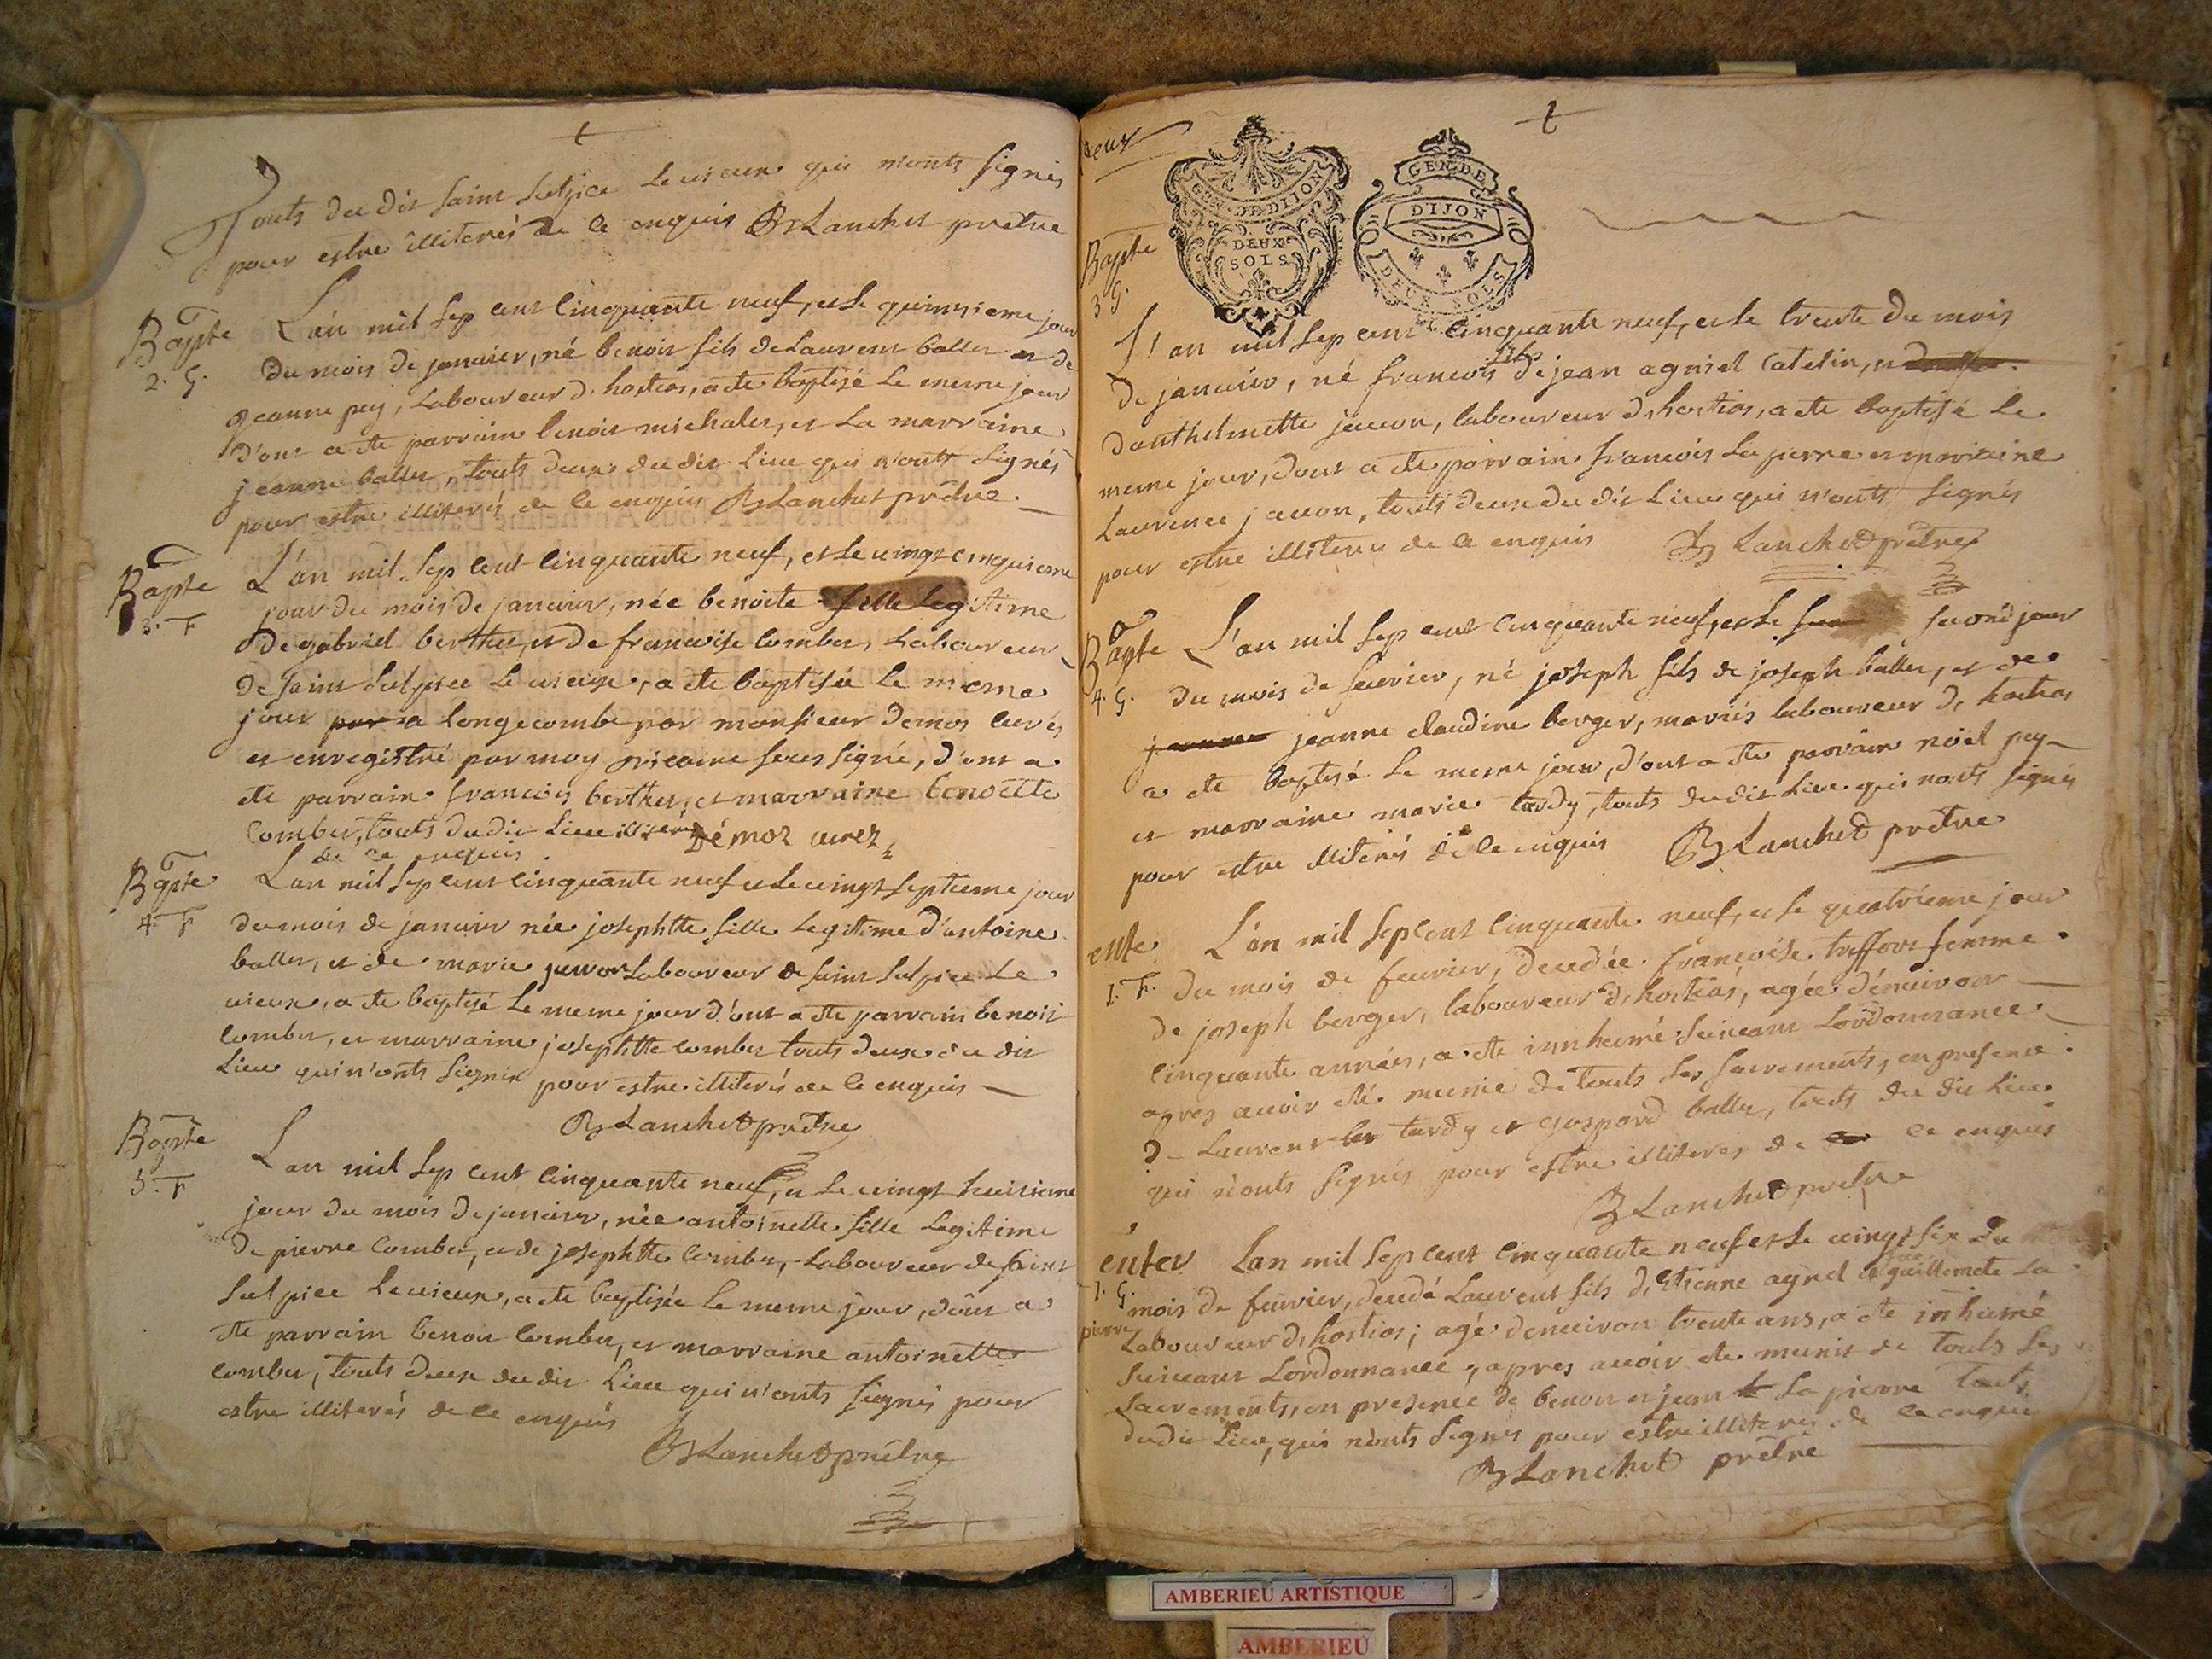 touts du dit saint sulpice le vieux qui n'onts signés
pour estre illiterés de ce enquis B Lanchet prêtre
Bapte L'an mil sep cent cinquante neuf, et le quinsieme jour
2. G. du mois de janvier, né benoit fils de Laurent ballet et de
jeanne pey, Laboureur d'hostias, a ete baptisé Le meme jour
d'ont a ete parrain benoit michalet, et La marraine
jeanne ballet, touts deux du dit Lieu qui n'onts signés
pour estre illiterés de ce enquis B Lanchet prêtre
Bapte L'an mil sep cent cinquante neuf, et le vingt cinquieme
3. F jour du mois de janvier, née benoite fille Legitime
de gabriel berthet, et de francoise combet, Laboureur
de saint sulpice Le vieux, a ete baptisée Le meme
jour par a Longecombe par monsieur demos curés
et enregistré par moy vicaire sous signé, d'ont a
ete parrain francois berthet, et marraine benoitte
combet, touts du dit Lieu illiterés Démoz curez
de ce enquis
Bapte L'an mil sep cent cinquante neuf et le vingt septieme jour
4. F du mois de janvier née josephtte fille Legitime d'antoine
ballet, et de marie juvon Laboureur de saint sulpice Le
vieux, a ete baptisé Le meme jour d'ont a ete parrain benoit
combet, et marraine josephtte combet touts deux du dit
Lieu qui n'onts signés pour estre illiterés de ce enquis
B Lanchet prêtre
Bapte L'an mil sep cent cinquante neuf, et le vingt huitieme
5. F jour du mois de janvier, née antoinette fille Legitime
de pierre combet, et de josephtte combet, Laboureur de saint
sulpice Le vieux, a ete baptisée Le meme jour, dont a
ete parrain benoit combet, et marraine antoinette
combet, touts deux du dit Lieu qui n'onts signés pour
estre illiterés de ce enquis
B Lanchet prêtre
deux
GEN. DE DIJON
DEUX
SOLS
GEN. DE
DIJON
DEUX SOLS
Bapte
3. G.
L'an mil sep cent cinquante neuf, et le trente du mois
de janvier, né francois fils de jean agniel catelin, et
d'anthelmette juvon, laboureur d'hostias, a ete baptisé Le
meme jour, dont a ete parrain francois La pierre et marraine
Laurence juvon, touts deux du dit Lieu qui n'onts signés
pour estre illiterés de ce enquis B Lanchet prêtre
Bapte L'an mil sep cent cinquante neuf, et le second jour
4. G. du mois de fevrier, né joseph fils de joseph ballet, et de
jeanne claudine berger, mariés laboureur d'hostias
a ete baptisé Le meme jour, d'ont a ete parrain noiel pey
et marraine marie tardy, touts du dit Lieu qui n'onts signés
pour estre illiterés de ce enquis B Lanchet prêtre
ente L'an mil sep cent cinquante neuf, et le quatrieme jour
1. F. du mois de fevrier, decedée francoise treffort femme
de joseph berger, laboureur d'hostias, agée d'enuiron
cinquante années, a ete innhumé suivant Lordonnance
apres auoir eté munie de touts les sacrements, en presence
D Laurent tardy et gaspard ballet, touts du dit Lieu
qui n'onts signés pour estre illiteres de ce enquis
B Lanchet prêtre
enter L'an mil sep cent cinquante neuf et le vingt six du
1. G. mois de fevrier, decedé Laurent fils d'Etienne agniel et guillemete La
pierre Laboureur d'hostias; agé denuiron trente ans, a ete inhumé
suivant Lordonnance, apres auoir ete munit de touts les
sacrements, en presence de benoit et jean La pierre touts
du dit Lieu, qui n'onts signés pour estre illiterés de ce enquis
B Lanchet prêtre
AMBERIEU ARTISTIQUE
AMBERIEU